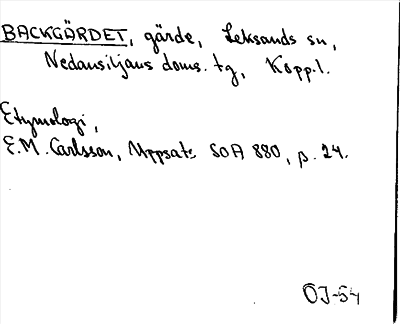 BACKGÄRDET, gärde, Leksands sn,
Nedansiljans doms. tg, Kopp.l.
Etymologi,
E.M. Carlsson, Uppsats SOA 880, p. 24.
OJ-54